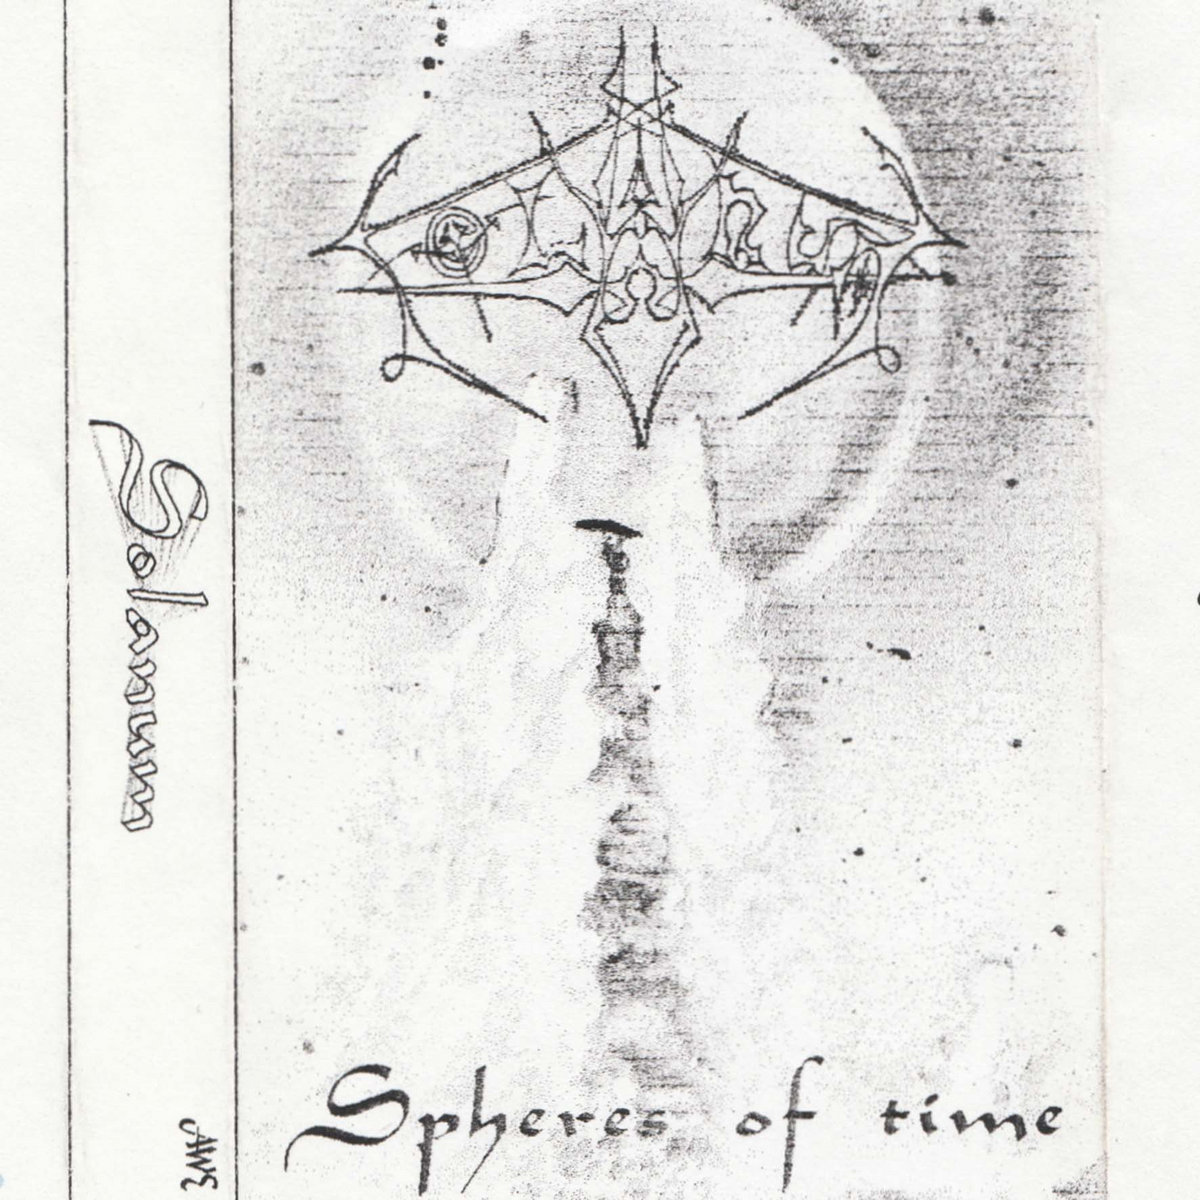 Solanum
Spheres of time